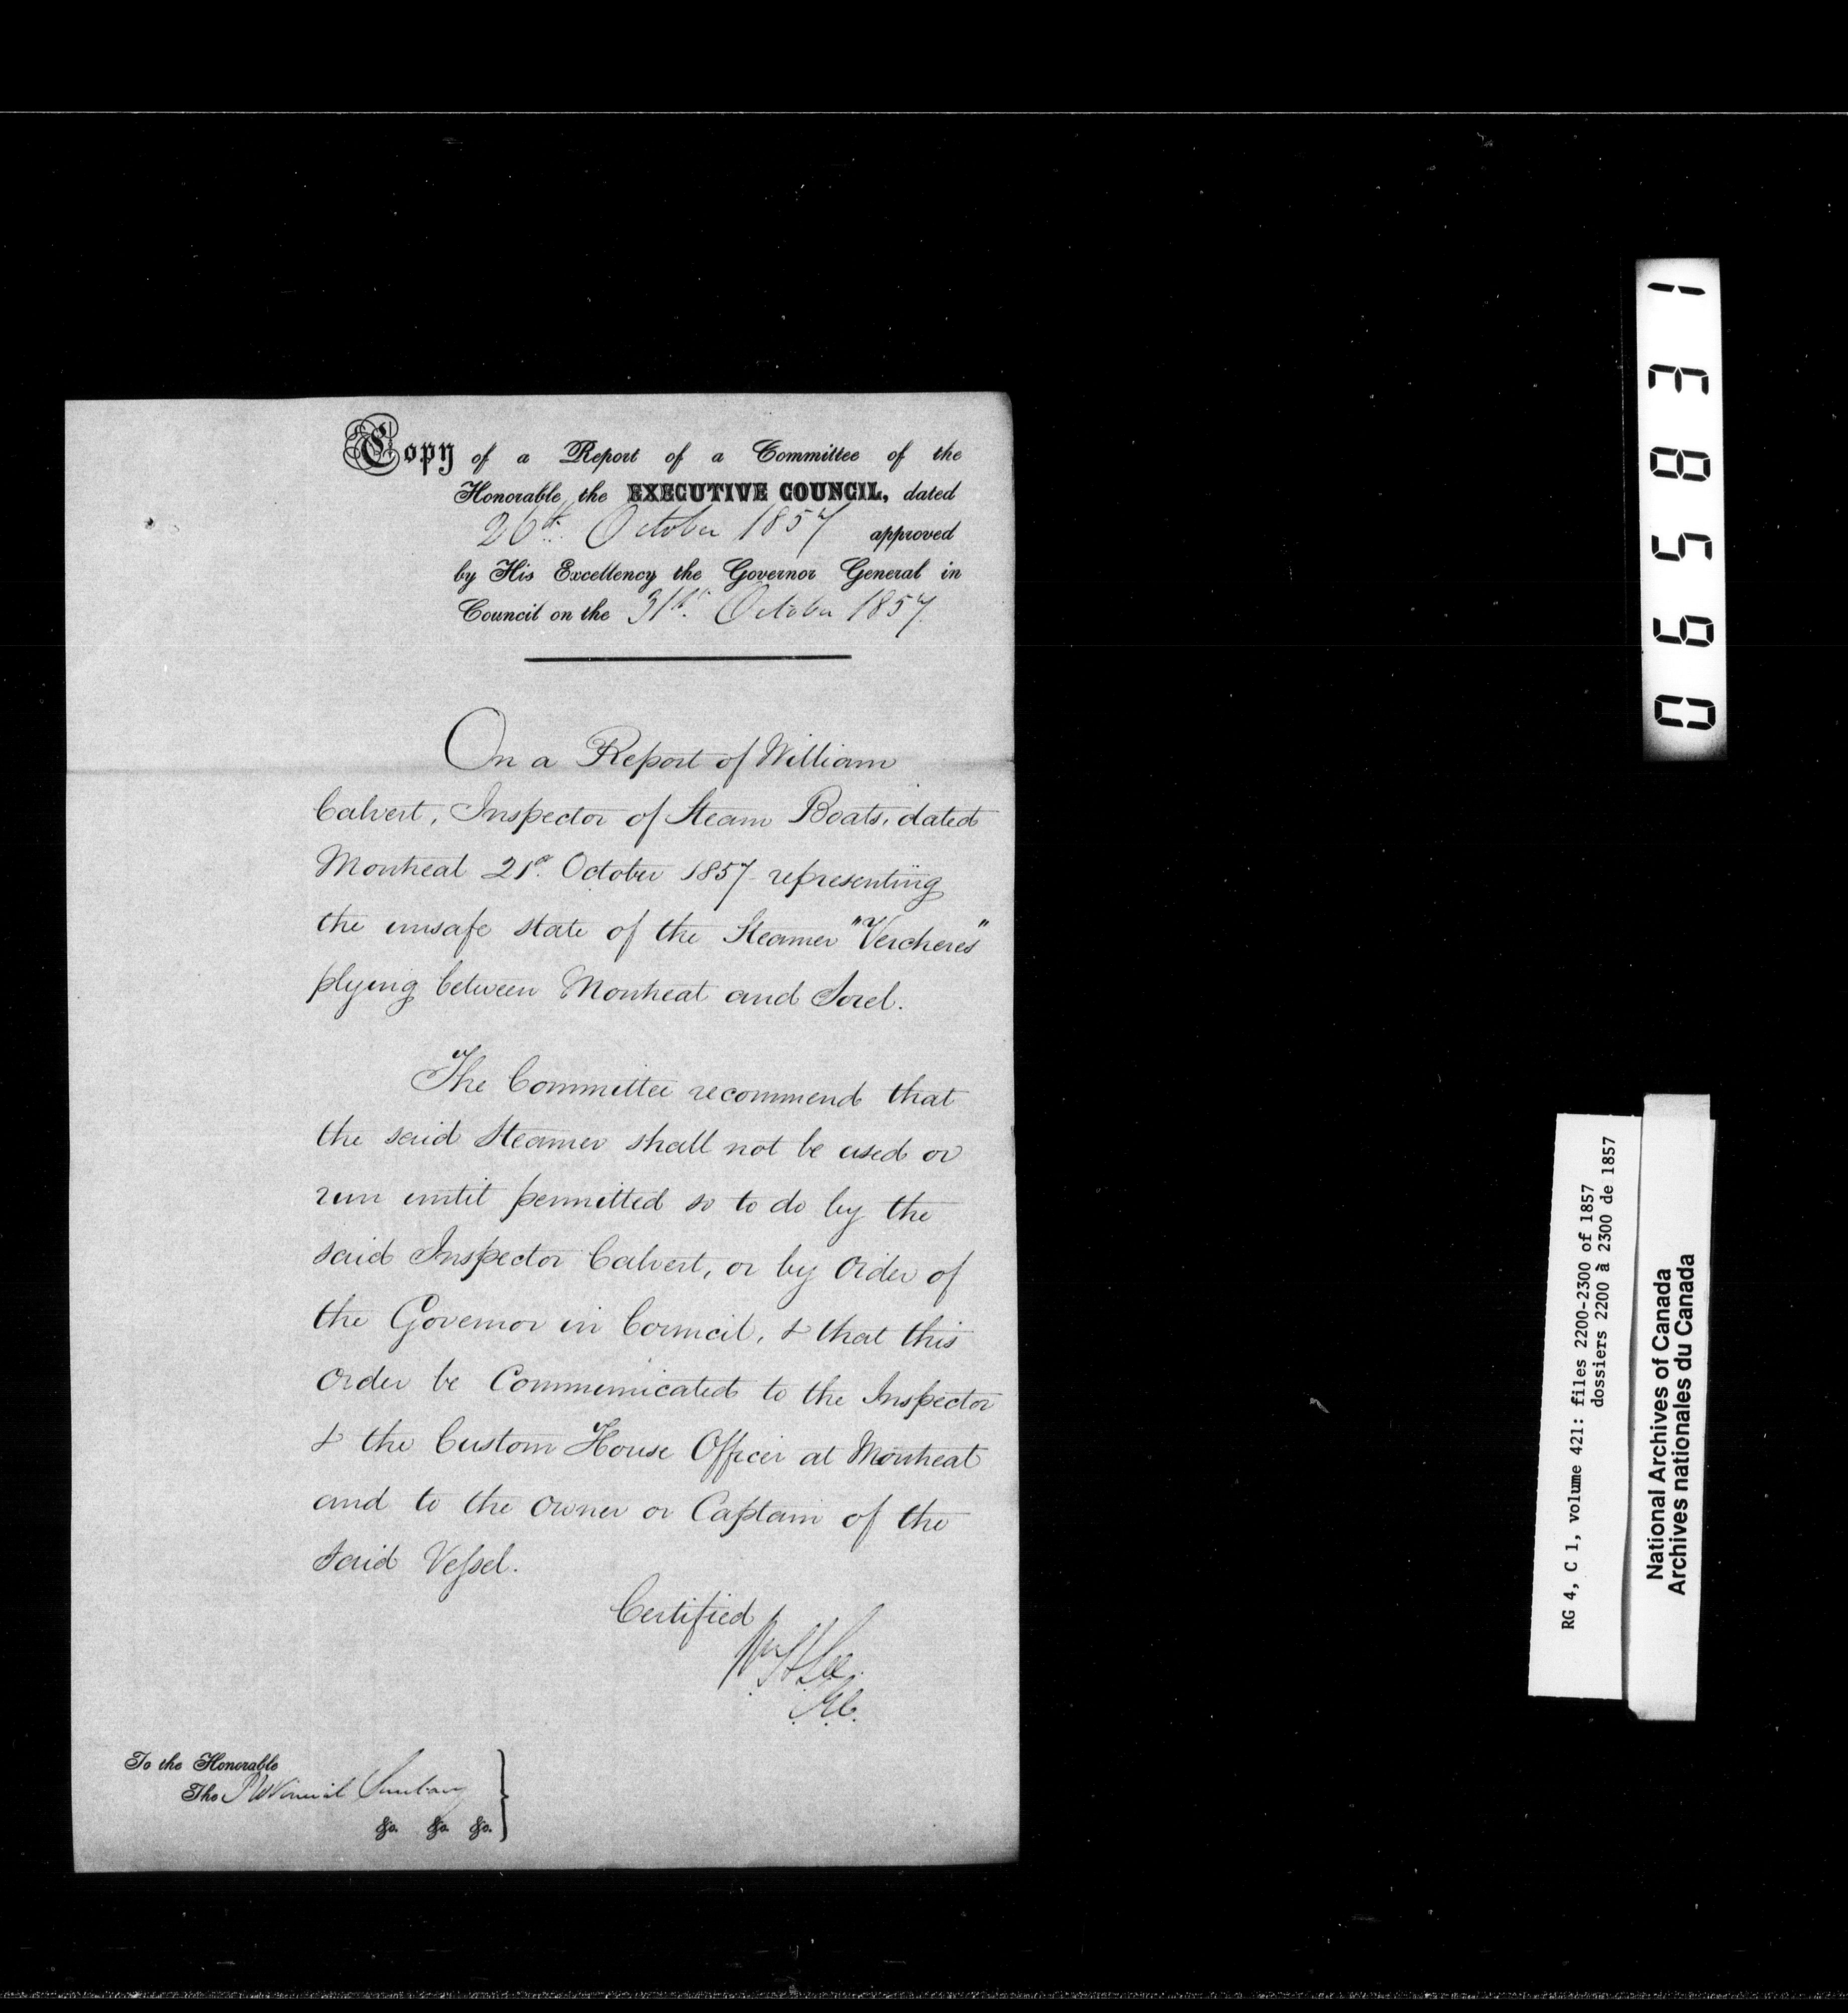 Copy of a Report of a Committee of the
Honorable the EXECUTIVE COUNCIL, dated
26th October 1857 approved
by His Excellency the Governor General in
Council on the 31st October 1857.
On a Report of William
Calvert, Inspector of Steam Boats, dated
Montreal 21st October 1857 representing
the unsafe state of the Steamer "Vercheres"
plying between Montreal and Sorel.
The Committee recommend that
the said Steamer shall not be used or
run until permitted so to do by the
said Inspector Calvert, or by Order of
the Governor in Council, & that this
Order be Communicated to the Inspector
& the Custom House Officer at Montreal
and to the Owner or Captain of the
said Vessel.
Certified
Wm H Lee
To the Honorable
The Provincial Secretary
&c. &c. &c.
065831
RG 4, C 1, volume 421: files 2200-2300 of 1857
dossiers 2200 à 2300 de 1857
National Archives of Canada
Archives nationales du Canada